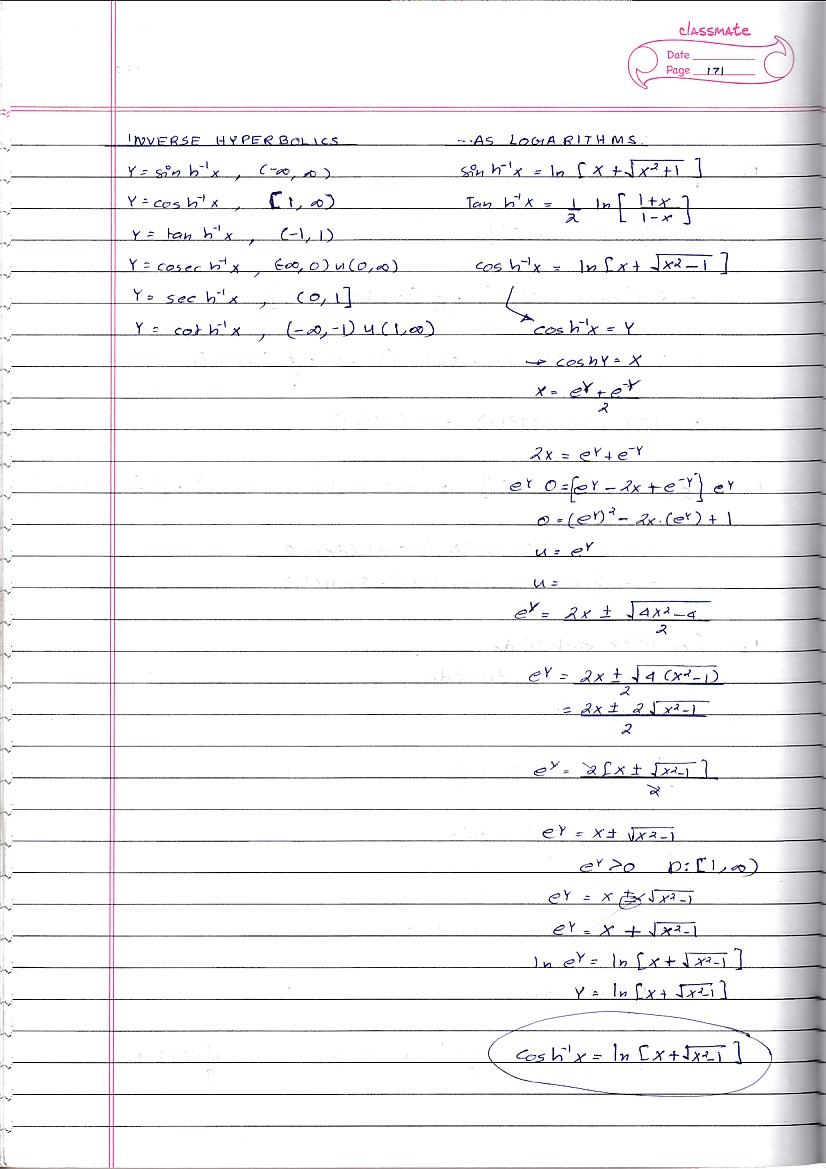 classmate
Date
Page 171
INVERSE HYPERBOLICS
Y = sin h⁻¹x , (-∞, ∞)
Y = cos h⁻¹x , [1, ∞)
Y = tan h⁻¹x , (-1, 1)
Y = cosec h⁻¹x , (-∞, 0) u (0, ∞)
Y = sec h⁻¹x , (0, 1]
Y = cot h⁻¹x , (-∞, -1) u (1, ∞)
...AS LOGARITHMS.
sin h⁻¹x = ln [x + √(x²+1)]
Tan h⁻¹x = 1/2 ln [(1+x)/(1-x)]
cos h⁻¹x = ln [x + √(x²-1)]
↳ cos h⁻¹x = Y
→ coshY = x
x = (e^Y + e^-Y)/2
2x = e^Y + e^-Y
e^Y 0 = [e^Y - 2x + e^-Y] e^Y
0 = (e^Y)² - 2x.(e^Y) + 1
u = e^Y
u =
e^Y = (2x ± √(4x²-4))/2
e^Y = (2x ± √(4(x²-1)))/2
= (2x ± 2√(x²-1))/2
e^Y = 2[x ± √(x²-1)]/2
e^Y = x ± √(x²-1)
e^Y > 0 D: [1, ∞)
e^Y = x ± √(x²-1)
e^Y = x + √(x²-1)
ln e^Y = ln [x + √(x²-1)]
Y = ln [x + √(x²-1)]
cos h⁻¹x = ln [x + √(x²-1)]